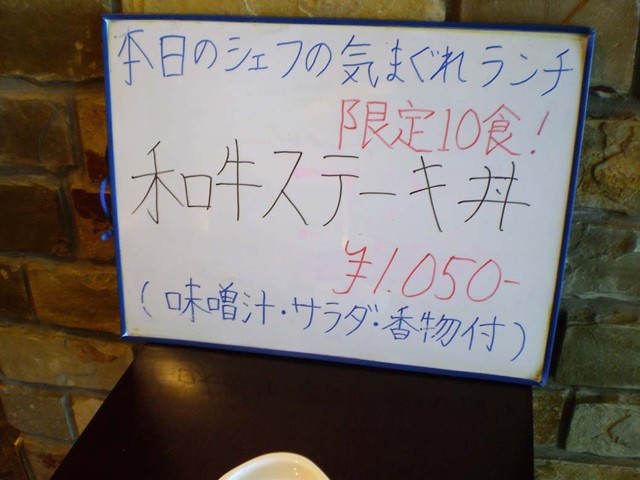 本日のシェフの気まぐれランチ
限定10食!
和牛ステーキ丼
¥1.050-
(味噌汁・サラダ・香物付)